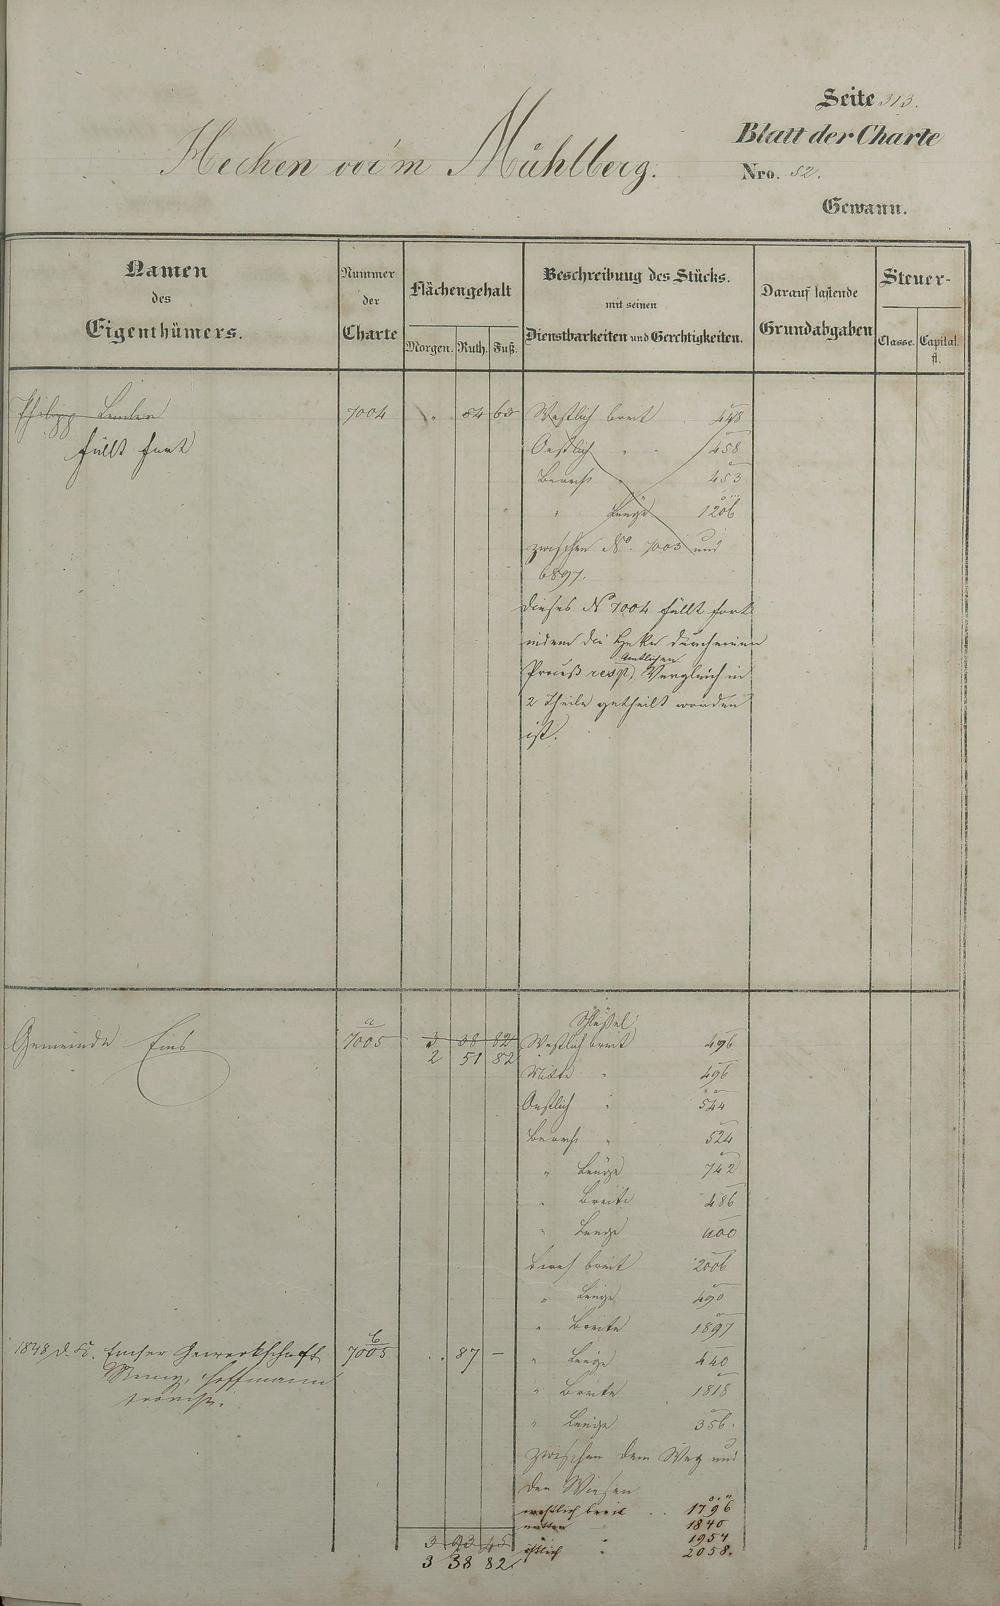 Seite 313.
Blatt der Charte
Nro. 52.
Gewann.
Hecken vor'm Mühlberg.
Namen
des
Eigenthümers.
Nummer
der
Charte
Flächengehalt
Morgen. Ruth. Fuß.
Beschreibung des Stücks.
mit seinen
Dienstbarkeiten und Gerechtigkeiten.
Darauf lastende
Grundabgaben
Steuer-
Classe. Capital.
fl.
Philipp Linden 7004 " 54 63 Westlich breit 448
fällt fort
Oestlich " " 458
Berech " 453
" Länge 1206
zwischen No. 7003 und
6897.
dieses No 7004 fällt fort
indem die Hecke durch einen
Amtlichen
Proceß resp. Vergleich in
2 Theile getheilt worden
ist.
Gemeinde Ems a 7005 3 38 82
2 51 82
Westlich breit 496
Mitte " 496
Oestlich " 544
Berech " 524
" Länge 742
" Breite 486
" Länge 400
Durch breit 2006
" Länge 490
" Breite 1897
1848 d. Emser Gewerkschaft b 7005 . . 87 — " Länge 440
Remy, Hoffmann
" Breite 1818
" Länge 356.
zwischen dem Weg und
den Wiesen
westlich breit . . 1796
mitten " 1840
" 1954
östlich " 2058.
3 93 45
3 38 82.